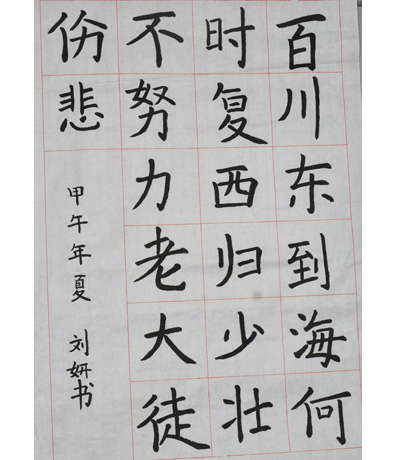 百川东到海何
时复西归少壮
不努力老大徒
伤悲
甲午年夏 刘妍书